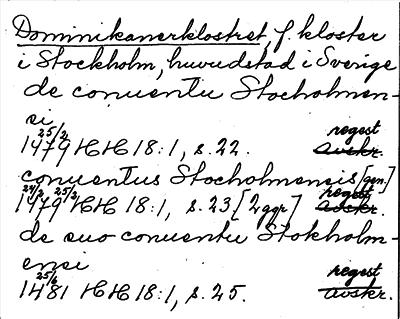 Dominikanerklostret, f. kloster
i Stockholm, huvudstad i Sverige
de conuentu Stocholmen-
si
25/2 regest
1479 HH 18:1, s. 22. avskr.
conuentus Stocholmensis [gen.]
24/2 25/2 regest
1479 HH 18:1, s. 23 [2 ggr] avskr.
de suo conuentu Stokholm-
ensi
regest
1481 HH 18:1, s. 25. avskr.